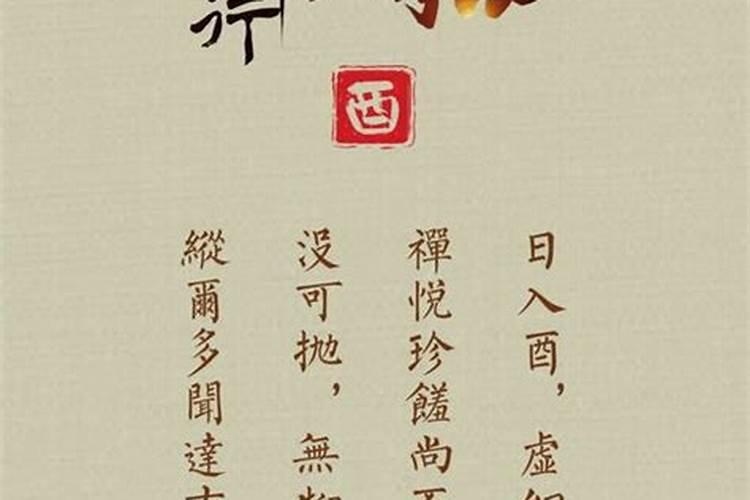 酉
日入酉，虛
禪悅珍饈尚
没可抛，無
縱爾多聞達